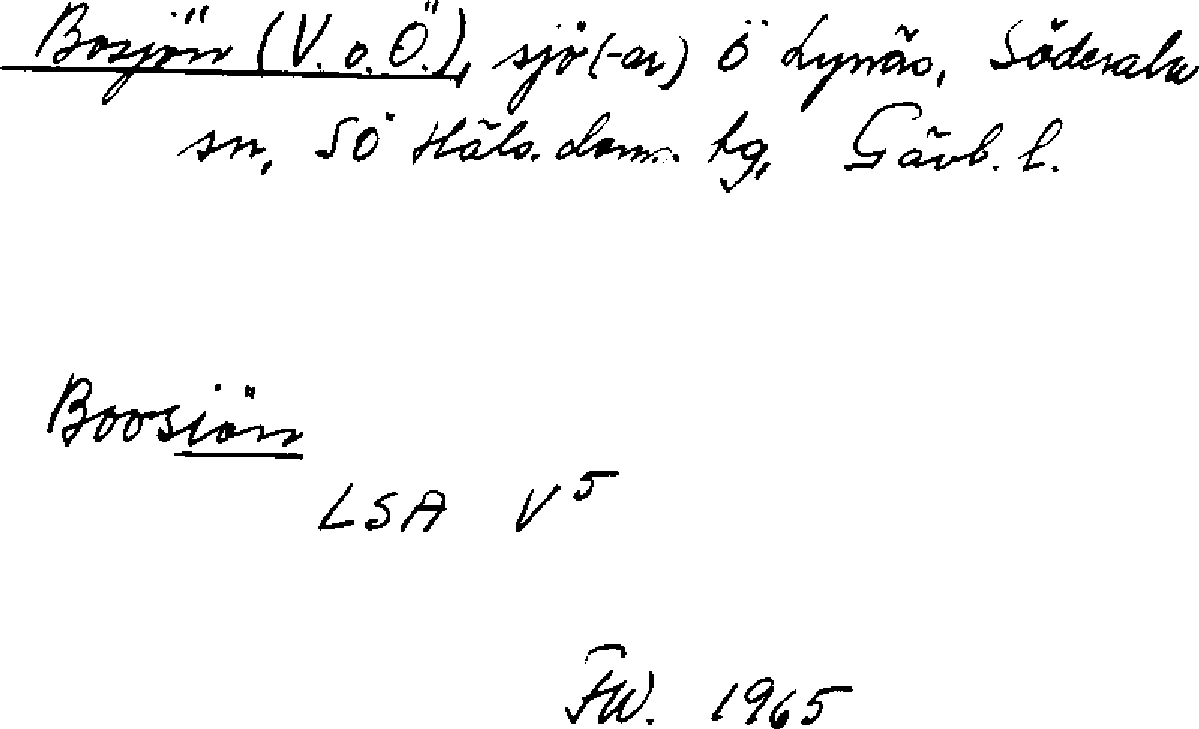 Bosjön (V. o. Ö.), sjö(-ar) Ö Lynäs, Söderala
sn, SÖ Häls. doms. tg, Gävb. l.
Boosiön
LSA V5
FW. 1965